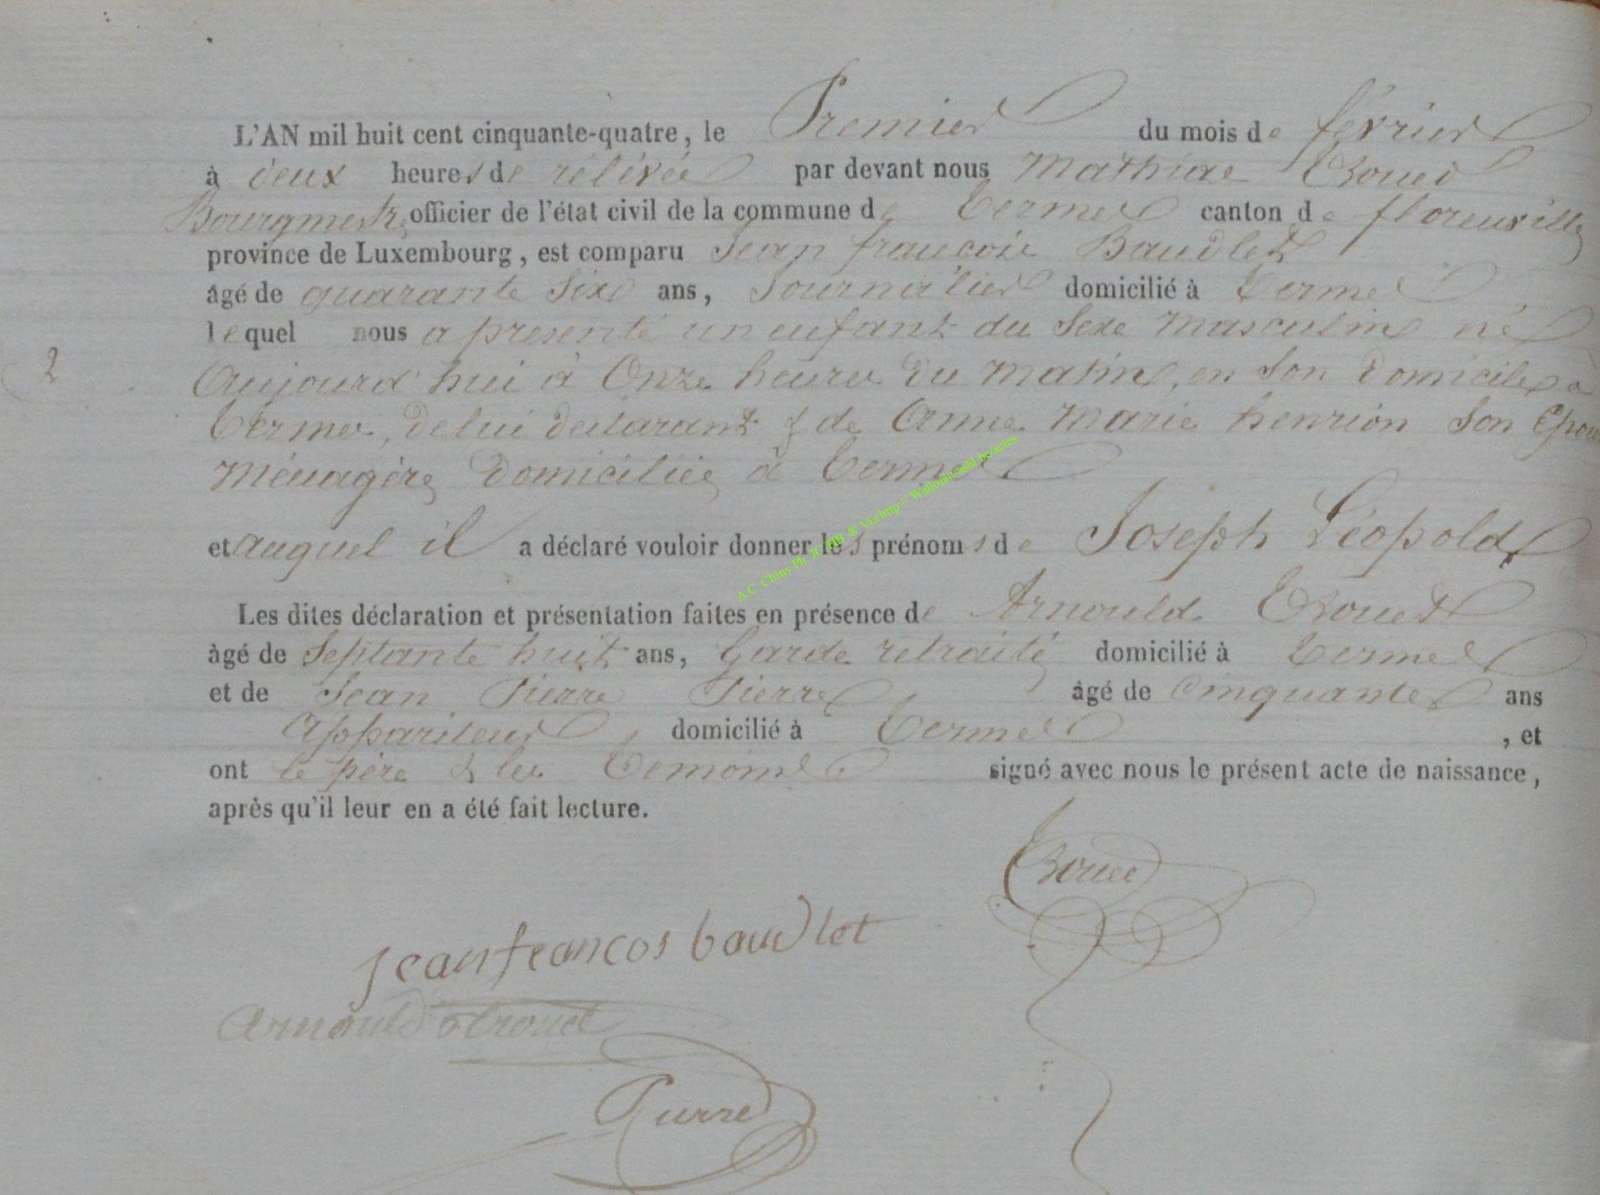 L'AN mil huit cent cinquante-quatre, le Premier du mois de février
à deux heures de rélévée par devant nous Mathias Roued
Bourgmestre officier de l'état civil de la commune de Termes canton de florenville
province de Luxembourg, est comparu Jean francois Baudlet
âgé de quarante Six ans, Journalier domicilié à Termes
lequel nous a presenté un enfant du Sexe Masculin né
Aujourd'hui à Onze heures du Matin, en Son domicile à
Termes, de lui declarant & de Anne Marie henrion Son Epouse
Ménagère domiciliée à Termes
2
et auquel il a déclaré vouloir donner les prénoms de Joseph Léopold
A.C. Chiny Ph.
Les dites déclaration et présentation faites en présence de Arnould
âgé de Septante huit ans, Garde retraité domicilié à Termes
et de Jean Pierre Pierre âgé de Cinquante ans
Appariteur, domicilié à Termes, et
ont le père & les Temoins signé avec nous le présent acte de naissance,
après qu'il leur en a été fait lecture.
Jean francos baudlet
Arnould
Pierre